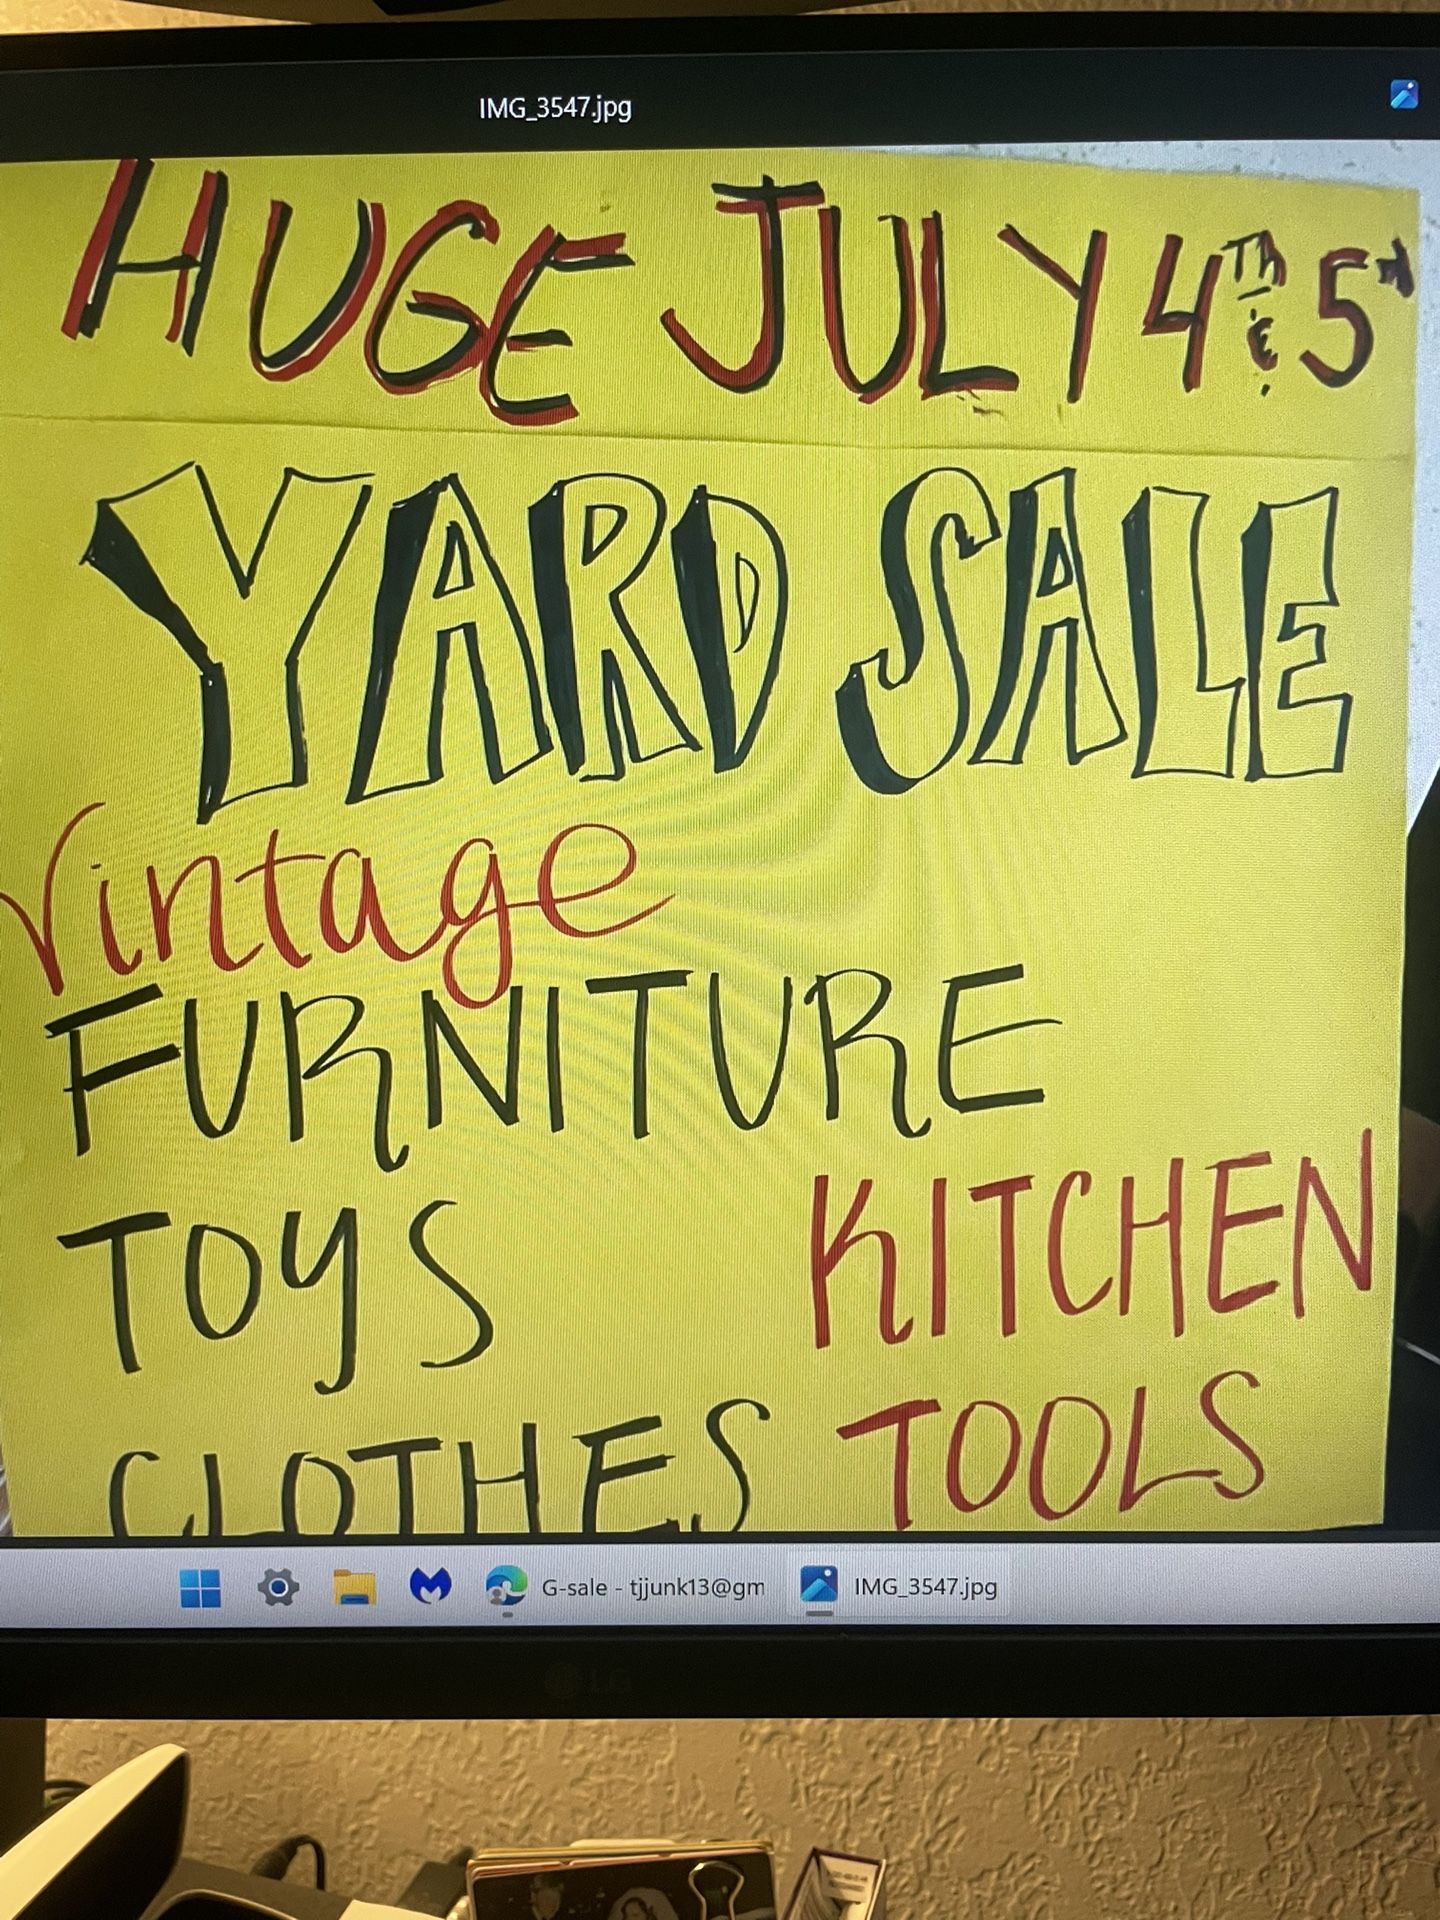 IMG_3547.jpg
HUGE JULY 4TH & 5TH
YARD SALE
Vintage
FURNITURE
TOYS KITCHEN
CLOTHES TOOLS
G-sale - tjjunk13@gm IMG_3547.jpg
LG